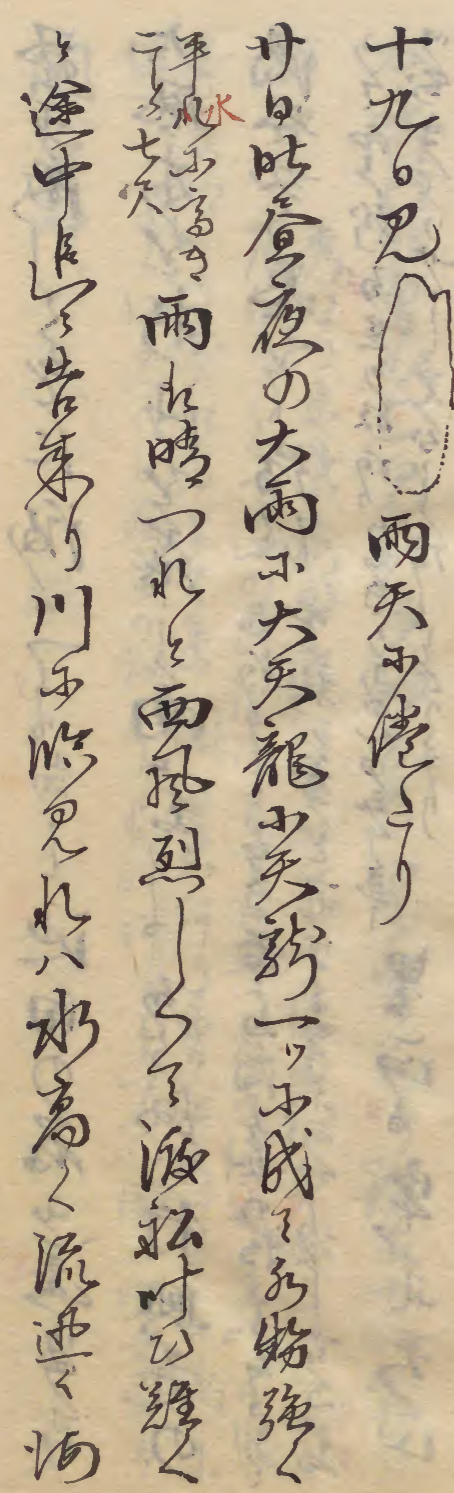 十九日見 雨天に滞こり
廿日昨昼夜の大雨に大天龍小天龍一ツに成て水勢強く
平水に高さ
二丈七尺
雨は晴つれと西風烈しくて渡船叶ひ難く
と途中追々告来り川に臨見れハ水高く流迅く海